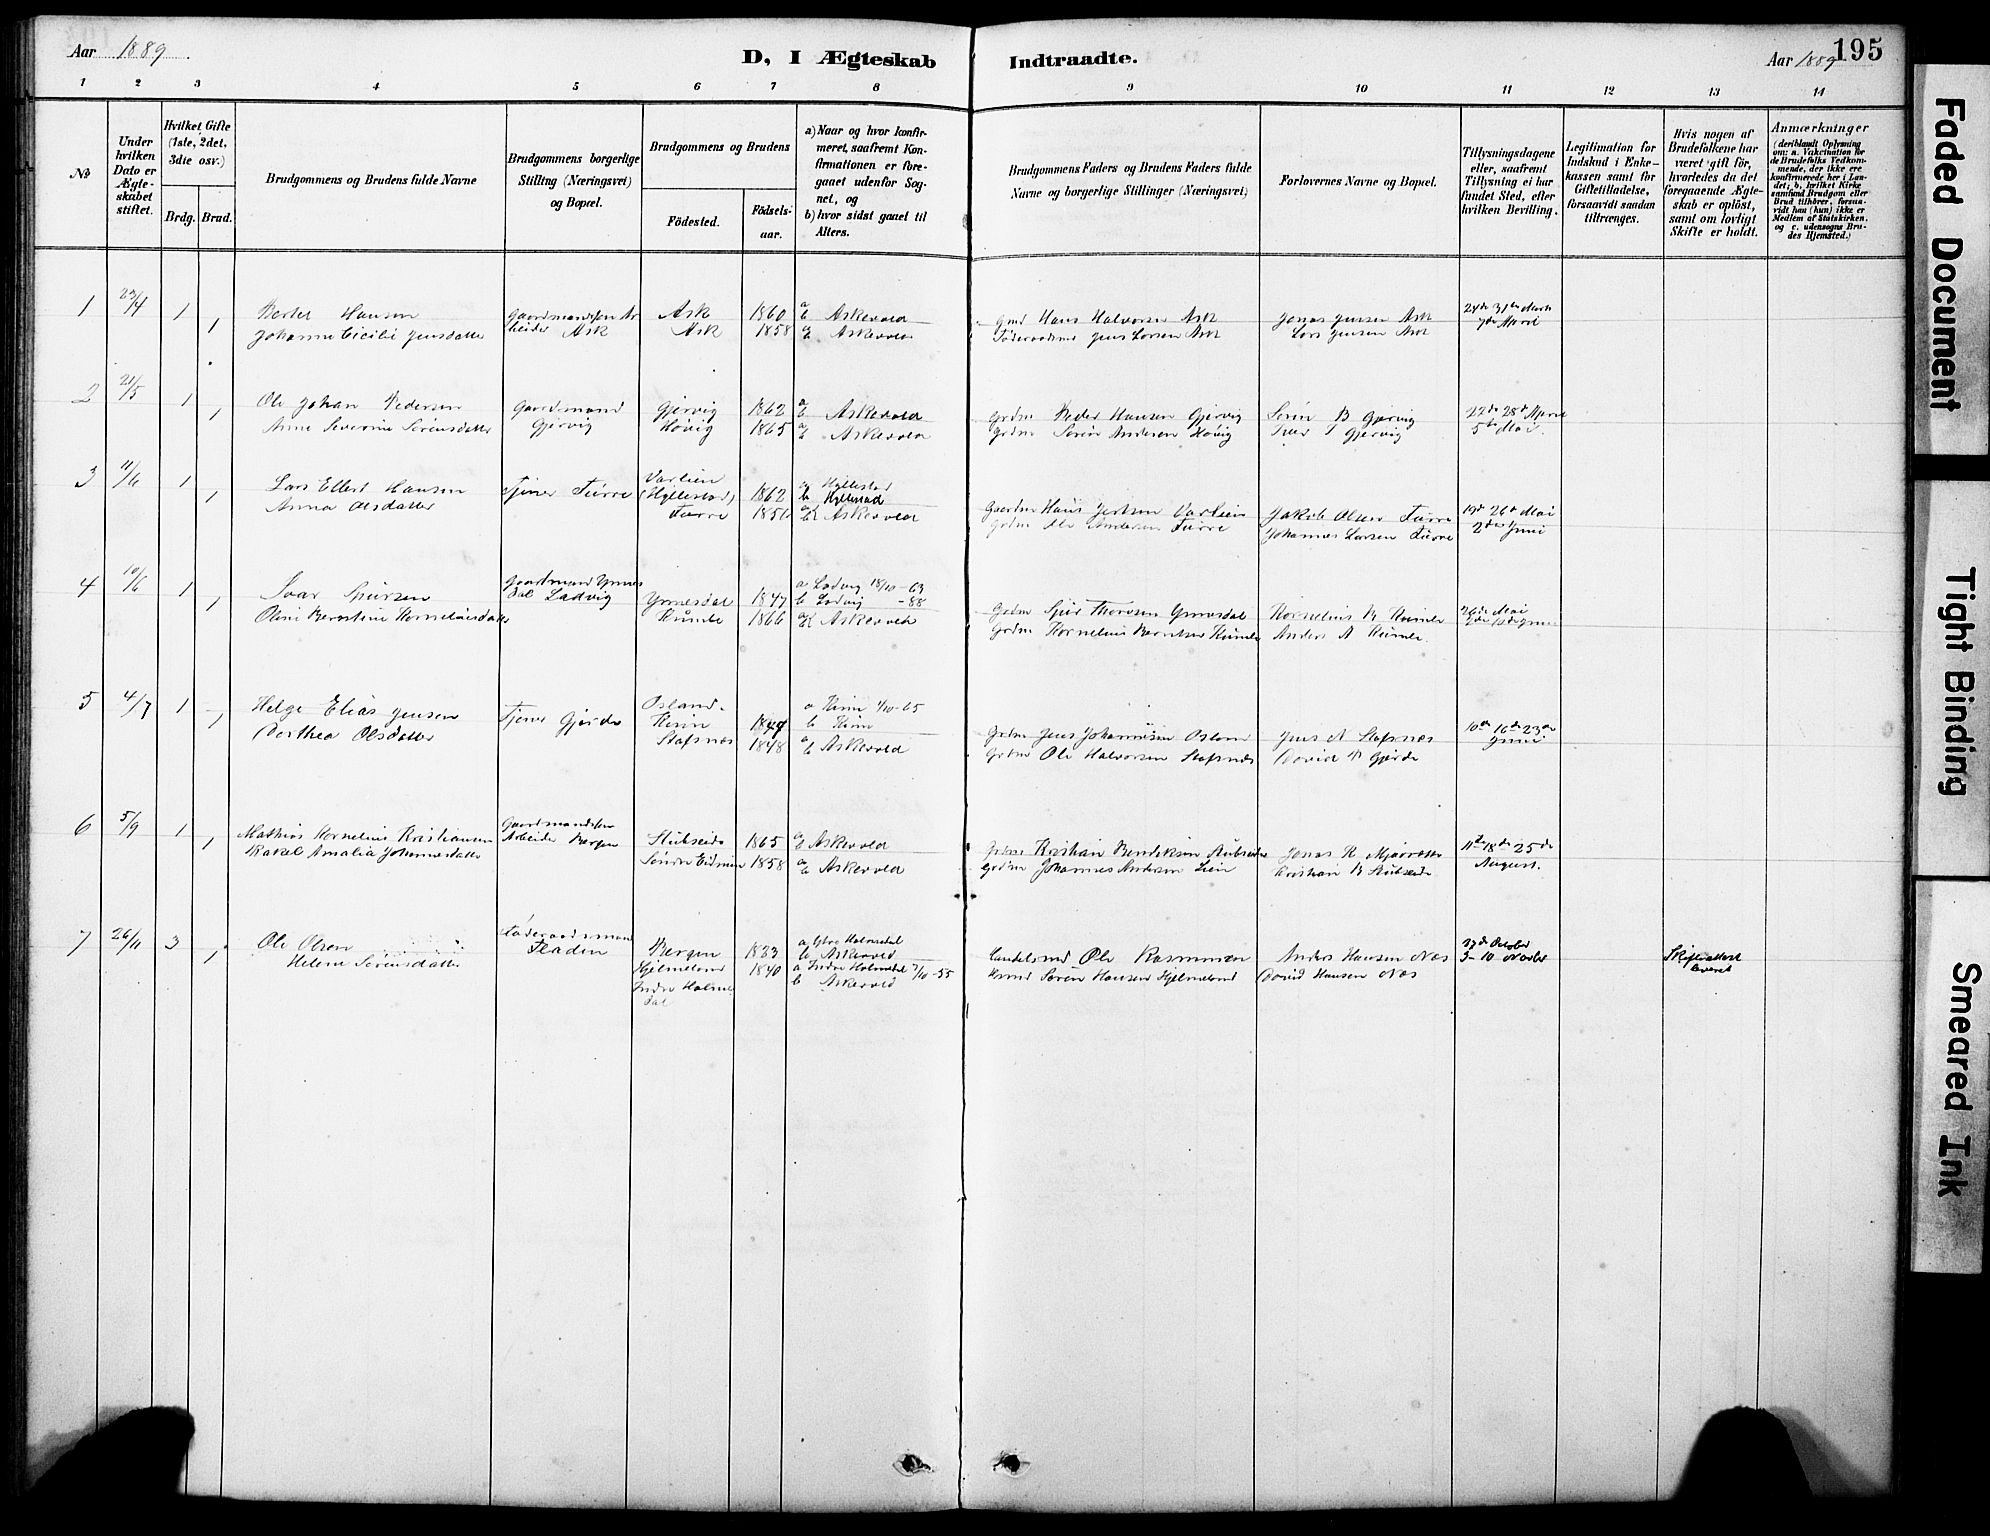 Aar 1889.
D, I Ægteskab Indtraadte.
Aar 1889
195
1 2 3 4 5 6 7 8 9 10 11 12 13 14
№
Under hvilken Dato er Ægteskabet stiftet.
Hvilket Gifte (1ste, 2det, 3die osv.)
Brdg. Brud.
Brudgommens og Brudens fulde Navne
Brudgommens borgerlige Stilling (Næringsvei) og Bopæl.
Brudgommens og Brudens
Födested.
Födselsaar.
a) Naar og hvor konfirmeret, saafremt Konfirmationen er foregaaet udenfor Sognet, og
b) hvor sidst gaaet til Alters.
Brudgommens Faders og Brudens Faders fulde Navne og borgerlige Stillinger (Næringsvei)
Forlovernes Navne og Bopæl.
Tillysningsdagene eller, saafremt Tillysning ei har fundet Sted, efter hvilken Bevilling.
Legitimation for Indskud i Enkekassen samt for Giftetilladelse, forsaavidt saadan tiltrænges.
Hvis nogen af Brudefolkene har været gift för, hvorledes da det foregaaende Ægteskab er oplöst, samt om lovligt Skifte er holdt.
Anmærkninger (deriblandt Oplysning om: a. Vakcination for de Brudefolks Vedkommende, der ikke ere konfirmerede her i Landet; b. hvilket Kirkesamfund Brudgom eller Brud tilhörer, forsaavidt han (hun) ikke er Medlem af Statskirken, og c. udensogns Brudes Hjemsted.)
1 23/4 1 1 Bertel Hansen Gaardmandssøn Arbeider Ask Ask 1860 a b Askevold Grd Hans Halvorsen Ask Jonas Jensen Ask 24de 31te Marts
Johanne Cicilie Jensdatter Ask 1858 a b Askevold Føderaadsmd Jens Larsen Ask Lars Jensen Ask 7de April
2 21/5 1 1 Ole Johan Pedersen Gaardmand Gjervig Gjervig 1862 a b Askevold Grdm Peder Hansen Gjervig Sørin B Gjervig 22de 28de April
Anne Severine Sørensdatter Høvig 1865 a b Askevold Grdm Søren Andersen Høvig Iver P Gjervig 5te Mai
3 11/6 1 1 Lars Ellert Hansen Tjener Furre Varlien (Hyllestad) 1862 a Hyllestad b Hyllestad Gaardm Hans Jertsen Varlien Jakob Olsen Furre 19de 26de Mai
Anna Olsdatter Furre a b Askevold Grdm Ole Andersen Furre Johannes Larsen Furre 2den Juni
4 10/6 1 1 Ivar Sjursen Gaardmand Ynnesdal Ladvig Ynnesdal 1847 a Ladvig 18/10-63 b Ladvig -88 Grdm Sjur Thoresen Ynnesdal Kornelius B Rümle 26de Mai
Oline Berentine Korneliusdatter Rümle 1866 a b Askevold Grdm Kornelius Berntsen Rümle Anders A Rümle
5 4/7 1 1 Helge Elias Jensen Tjener Gjørde Osland Kinn a Kinn 1/10-65 b Kinn Grdm Jens Johannesen Osland Jens A Stafsnæs 10de 16de 23de
Dorthea Olsdatter Stafsnæs 1848 a b Askevold Grdm Ole Halvorsen Stafsnæs David P Gjørde Juni
6 5/9 1 1 Mathias Kornelius Kristiansen Gaardmandssøn Arbeider Bergen Stubseide 1865 a b Askevold Grdm Kristian Bendiksen Stubseide Jonas R 11te 18de 25de
Rakel Amalia Johannesdatter Søndre Eidmin 1858 a b Askevold Grdm Johannes Andersen Lien Kristian B Stubseide August.
7 26/11 3 1 Ole Olsen Føderaadsmand Fladen Bergen 1823 a Ytre Holmedal b Askevold Handelsmd Ole Rasmussen Anders Hansen Næs 27de October Skifteattest
Helene Sørensdatter Hjelmeland Indre Holmedal 1840 a Indre Holmedal 7/10-55 b Askevold Søren Hansen Hjelmeland David Hansen Næs 3-10 Novbr leveret
Faded Document
Tight Binding
Smeared Ink